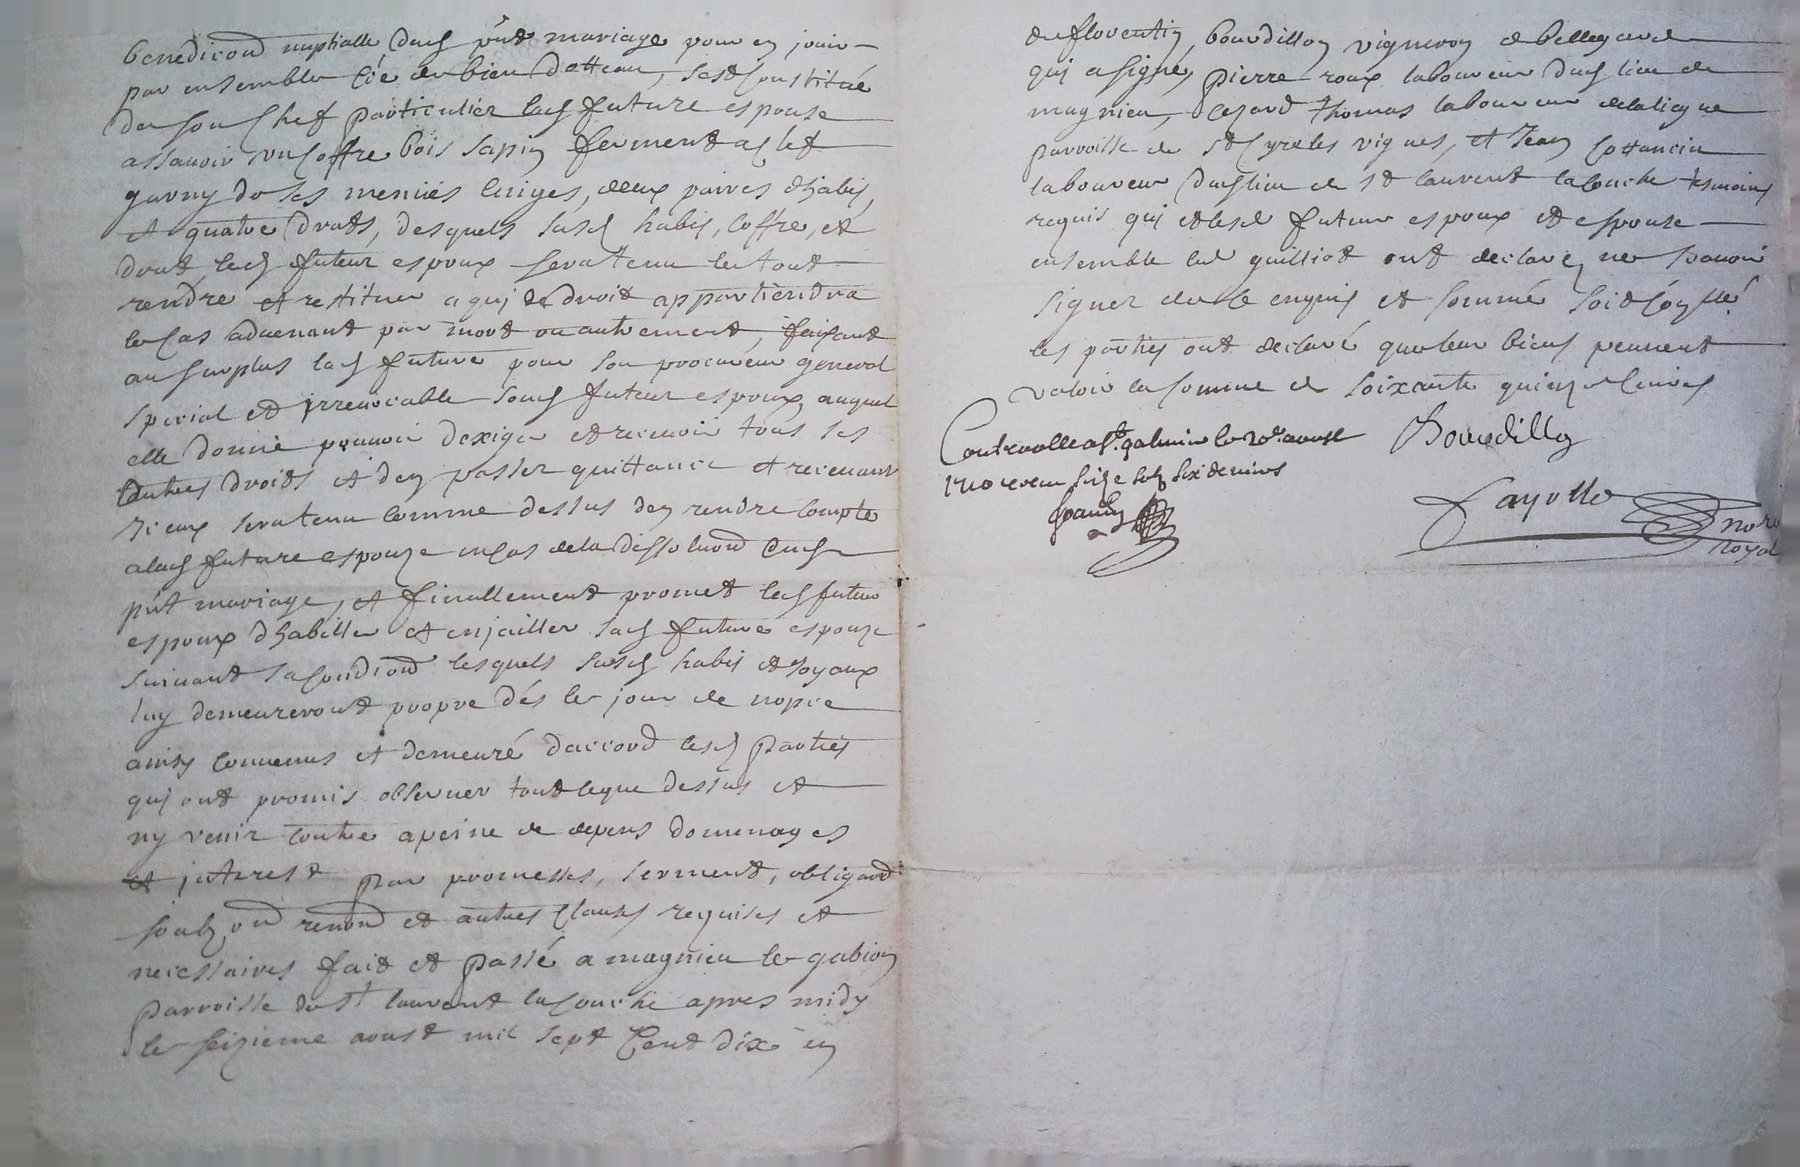 benediçond nuptialle dud pñt mariage pour en jouir
par ensemble de bien dotteau, sest constitué
de son chef particulier lad future espouse
assauoir un coffre bois sapin ferment a clef
garny de ses menües linges, deux paires d'habis,
et quatre dras, desquels susd habis, coffre, et
dras led futeur espoux sera tenu le tout
rendre et restituer a qui de droit appartiendra
le cas aduenant par mort ou autrement, faisant
au surplus lad future pour son procureur general
special et irreuocable soud futeur espoux auquel
elle donne pouuoir dexiger et receuoir tous ses
autres droits et den passer quittance et receuant
iceux sera tenu comme dessus den rendre compte
a lad future espouze en cas de la dissoluond dud
pñt mariage, et finallement promet led futeur
espoux d'habiller et enjailler sad future espouze
suiuant sa condiond lesquels susd habis et joyaux
luy demeureront propre dés le jour de nopce
ainsy conuenus et demeuré daccord lesd parties
qui ont promis obseruer tout ceque dessus et
ny venir contre a peine de depens dommages
et interest par promesses, serment, obligaond
soubz ond renond et autres clauses requises et
necessaires fait et passé a magnieu le gabion
parroisse de st laurent la conche apres midy
le seizieme aoust mil sept cent dix en
de floventin, bourdillon vigneron de bellegarde
qui a signé, pierre roux laboureur dud lieu de
magnieu, thomas laboureur
parroisse de st Cyre les vignes, et Jean Cottancin
laboureur dud lieu de st laurent la conche tesmoins
requis qui et lesd futeur espoux et espouse
ensemble led guilliot ont declaré ne scauoir
signer de ce enquis et sommé soit conllé
les parties ont declaré que leur biens peuuent
valoir la somme de soixante quinze liures
Controolle a st galmier le 20e aoust
1710 receu seize solz six deniers
Bourdillon
Fayolle
nore
royal